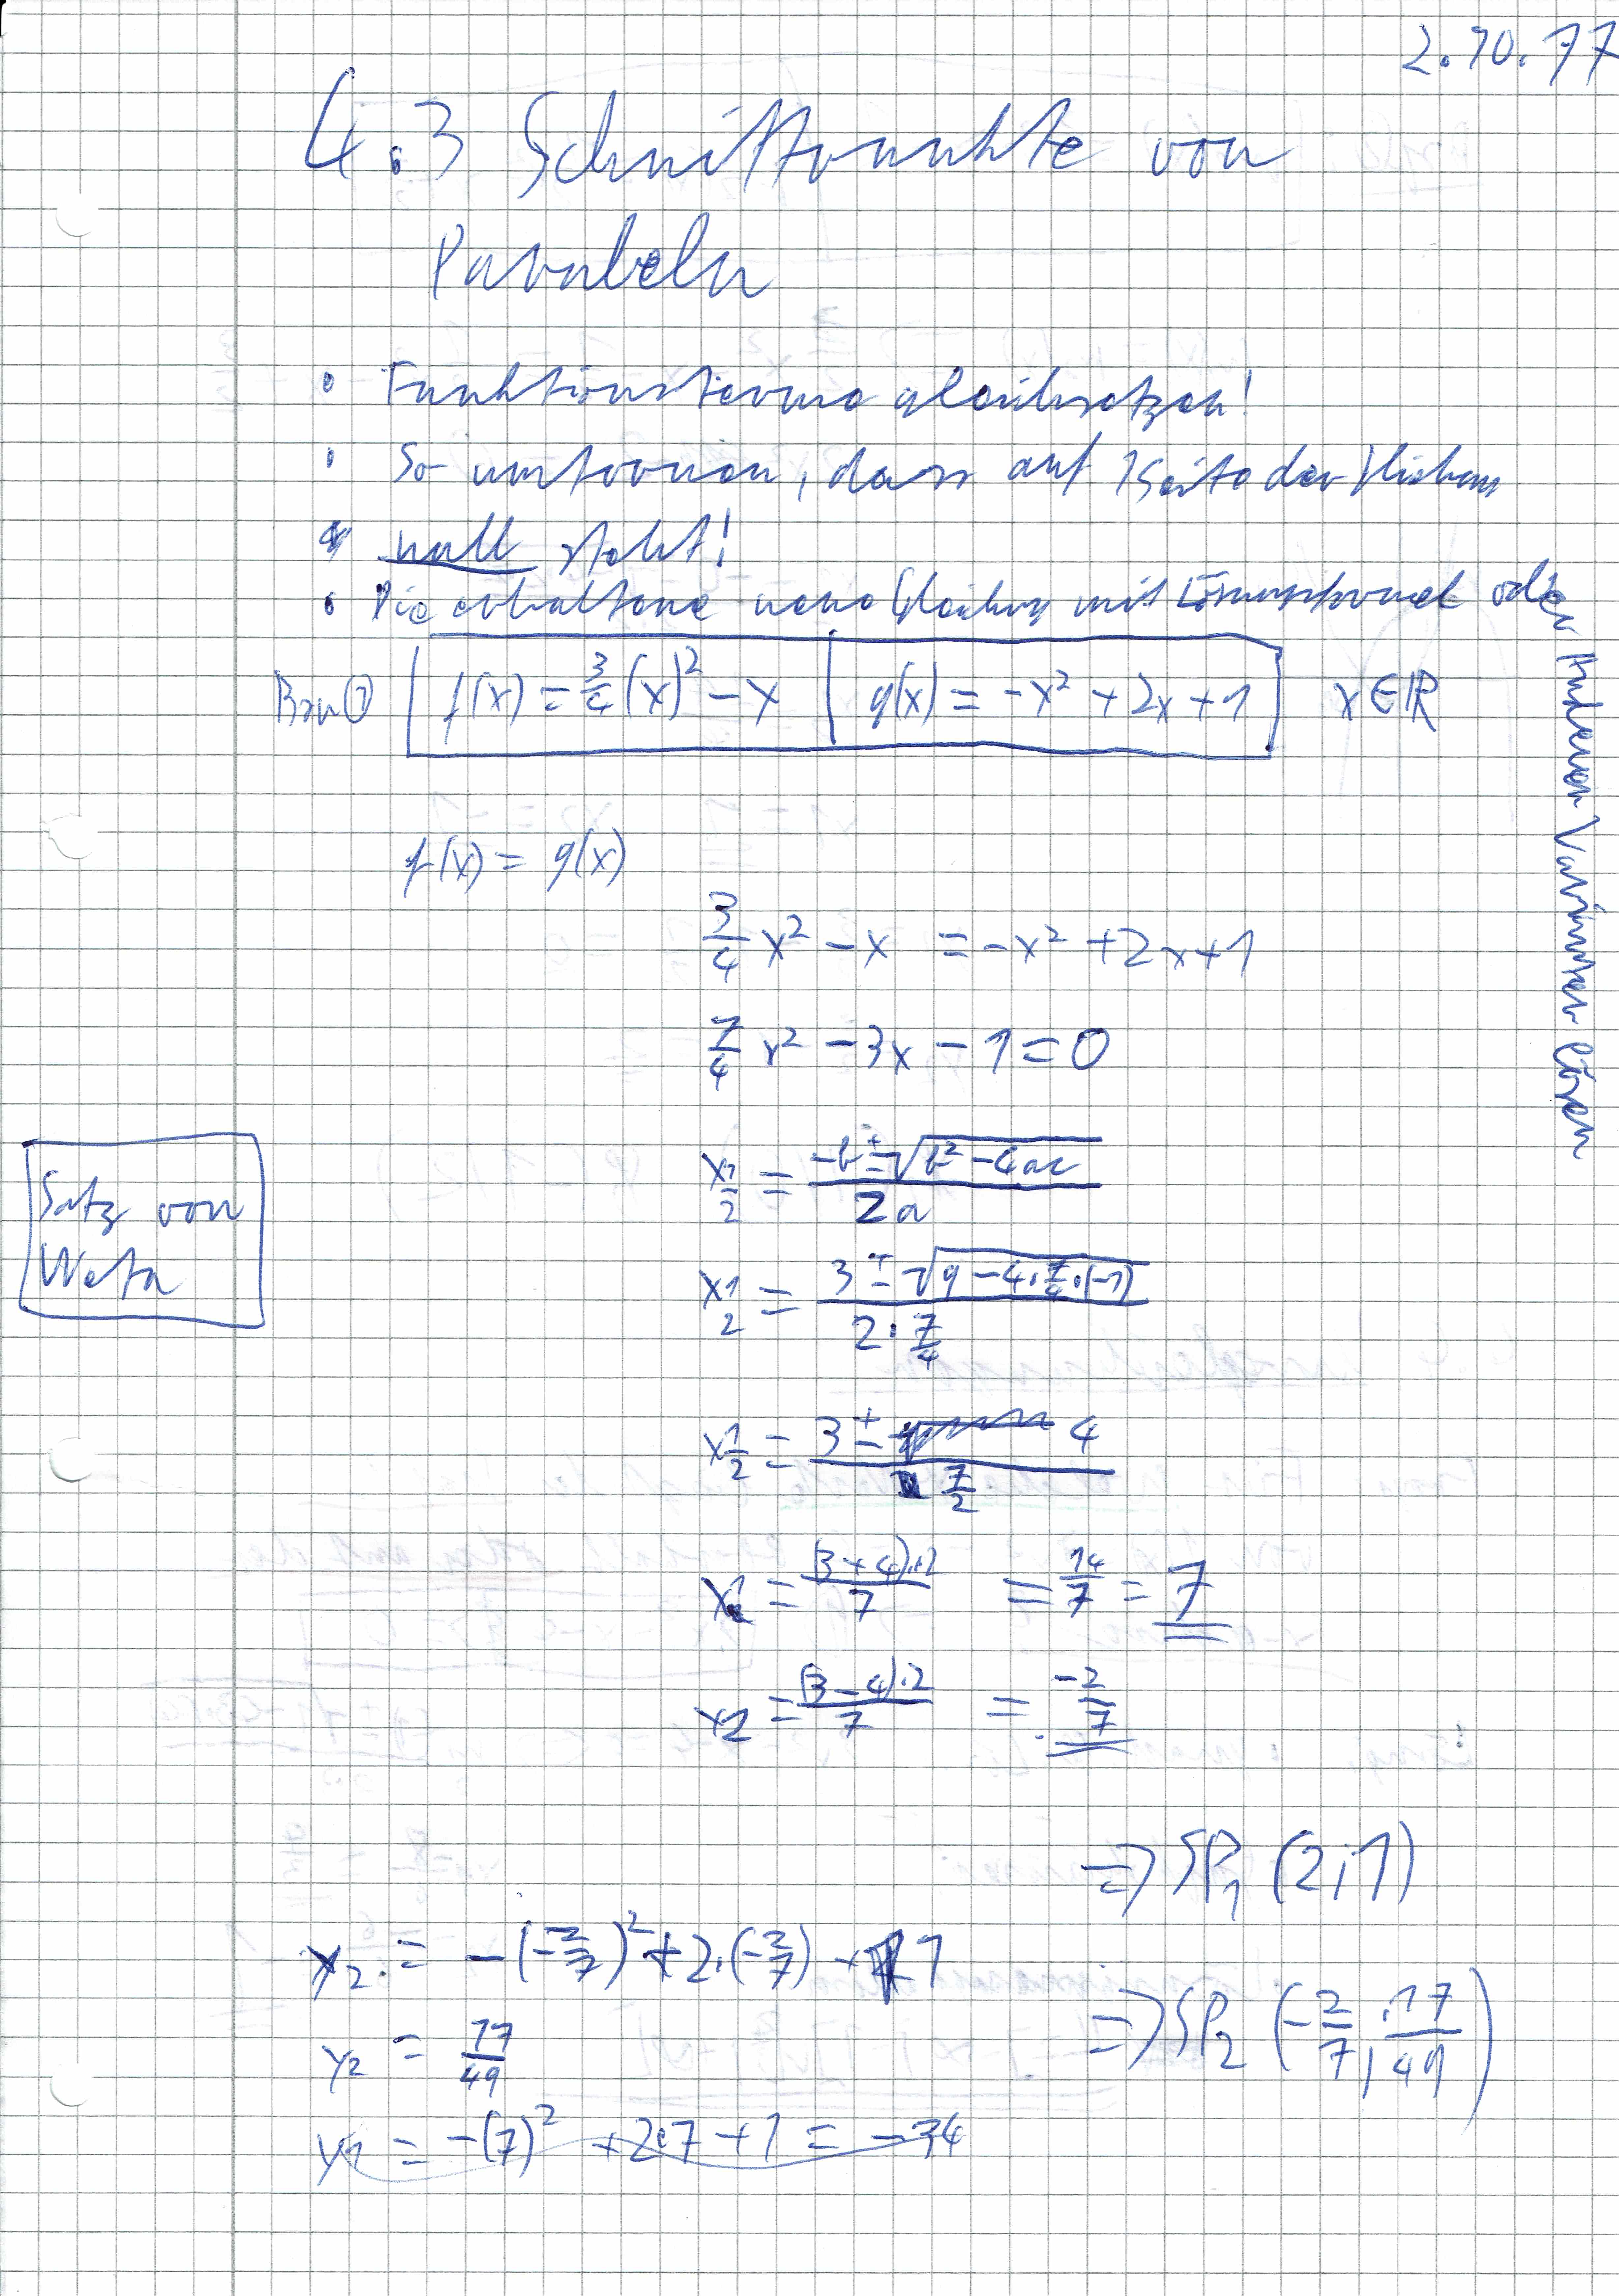 2.10.11
4.3 Schnittpunkte von
Parabeln
• Funktionsterme gleichsetzen!
• So umformen, dass auf 1 Seite der
null steht!
• Die erhaltene neue Gleichung mit Lösungsformel oder anderen Varianten lösen
Bsp ① f(x) = 3/4 (x)² - x | g(x) = -x² + 2x + 1 x ∈ ℝ
f(x) = g(x)
3/4 x² - x = -x² + 2x + 1
7/4 x² - 3x - 1 = 0
x1/2 = (-b ± √(b² - 4ac)) / 2a
Satz von
Vieta
x1/2 = (3 ± √(9 - 4 · 7/4 · (-1))) / (2 · 7/4)
x1/2 = (3 ± 4) / (7/2)
x1 = ((3 + 4) · 2) / 7 = 14/7 = 7
x2 = ((3 - 4) · 2) / 7 = -2/7
=> SP₁ (2;1)
y2 = -(-2/7)² + 2·(-2/7) + 1
y2 = 17/49
=> SP₂ (-2/7; 17/49)
y1 = -(7)² + 2·7 + 1 = -34